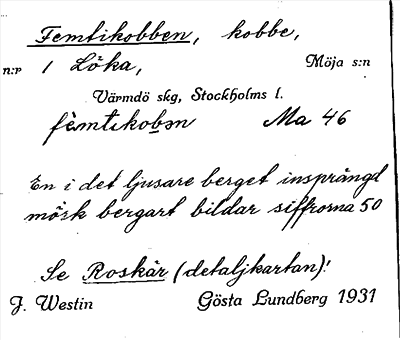 Femtikobben, kobbe,
n:r 1 Löka, Möja s:n
Värmdö skg, Stockholms l.
fèmtıkobən Ma 46
En i det ljusare berget insprängd
mörk bergart bildar siffrorna 50
Se Roskär (detaljkartan)!
J. Westin Gösta Lundberg 1931